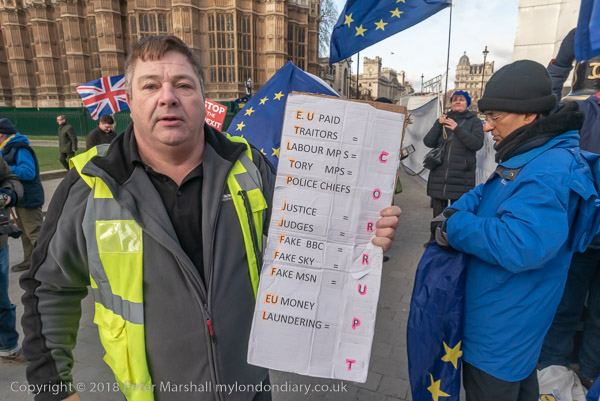 STOP
BREXIT
E. U PAID
TRAITORS =
LABOUR MPS =
TORY MPS =
POLICE CHIEFS
JUSTICE =
JUDGES =
FAKE BBC =
FAKE SKY =
FAKE MSN =
EU MONEY
LAUNDERING =
CORRUPT
Copyright © 2018 Peter Marshall mylondondiary.co.uk